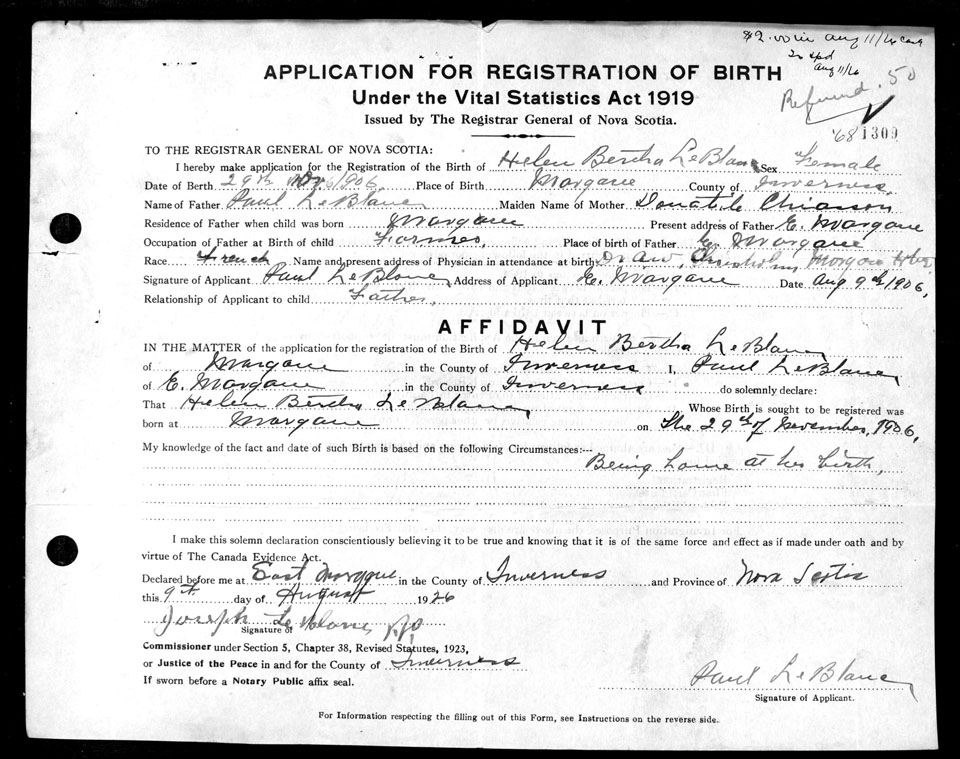 $2.00 in Aug 11/26 cash
Aug 11/26
Refund .50
'68 1309
APPLICATION FOR REGISTRATION OF BIRTH
Under the Vital Statistics Act 1919
Issued by The Registrar General of Nova Scotia.
TO THE REGISTRAR GENERAL OF NOVA SCOTIA:
I hereby make application for the Registration of the Birth of Helen Bertha LeBlanc Sex Female
Date of Birth 29th Nov. 1906, Place of Birth Margaree County of Inverness.
Name of Father Paul LeBlanc Maiden Name of Mother Donatile Chiasson
Residence of Father when child was born Margaree Present address of Father E. Margaree
Occupation of Father at Birth of child Farmer, Place of birth of Father E. Margaree
Race French Name and present address of Physician in attendance at birth Margaree
Signature of Applicant Paul LeBlanc Address of Applicant E. Margaree Date Aug 9th 1906,
Relationship of Applicant to child Father.
AFFIDAVIT
IN THE MATTER of the application for the registration of the Birth of Helen Bertha LeBlanc
of Margaree in the County of Inverness I, Paul LeBlanc
of E. Margaree in the County of Inverness do solemnly declare:
That Helen Bertha LeBlanc Whose Birth is sought to be registered was
born at Margaree on the 29th of November, 1906,
My knowledge of the fact and date of such Birth is based on the following Circumstances:---
Being home at her birth,
I make this solemn declaration conscientiously believing it to be true and knowing that it is of the same force and effect as if made under oath and by
virtue of The Canada Evidence Act.
Declared before me at East Margaree in the County of Inverness and Province of Nova Scotia
this 9th day of August 1926
Joseph LeBlanc J.P.
Signature of
Commissioner under Section 5, Chapter 38, Revised Statutes, 1923,
or Justice of the Peace in and for the County of Inverness
If sworn before a Notary Public affix seal.
Paul LeBlanc
Signature of Applicant.
For Information respecting the filling out of this Form, see Instructions on the reverse side.